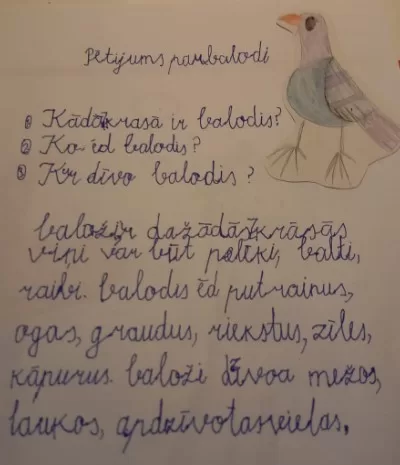 Pētijums parbalodi
① Kādā krasā ir balodis?
② Ko ēd balodis?
③ Kur dīvo balodis?
baloži ir dažādās krāsās
viņi var būt pelēki, balti,
raibi. balodis ēd putraimus,
ogas, graudus, riekstus, zīles,
kāpurus. baloži dzīvoa mežos,
laukos, apdzīvotasvietas.